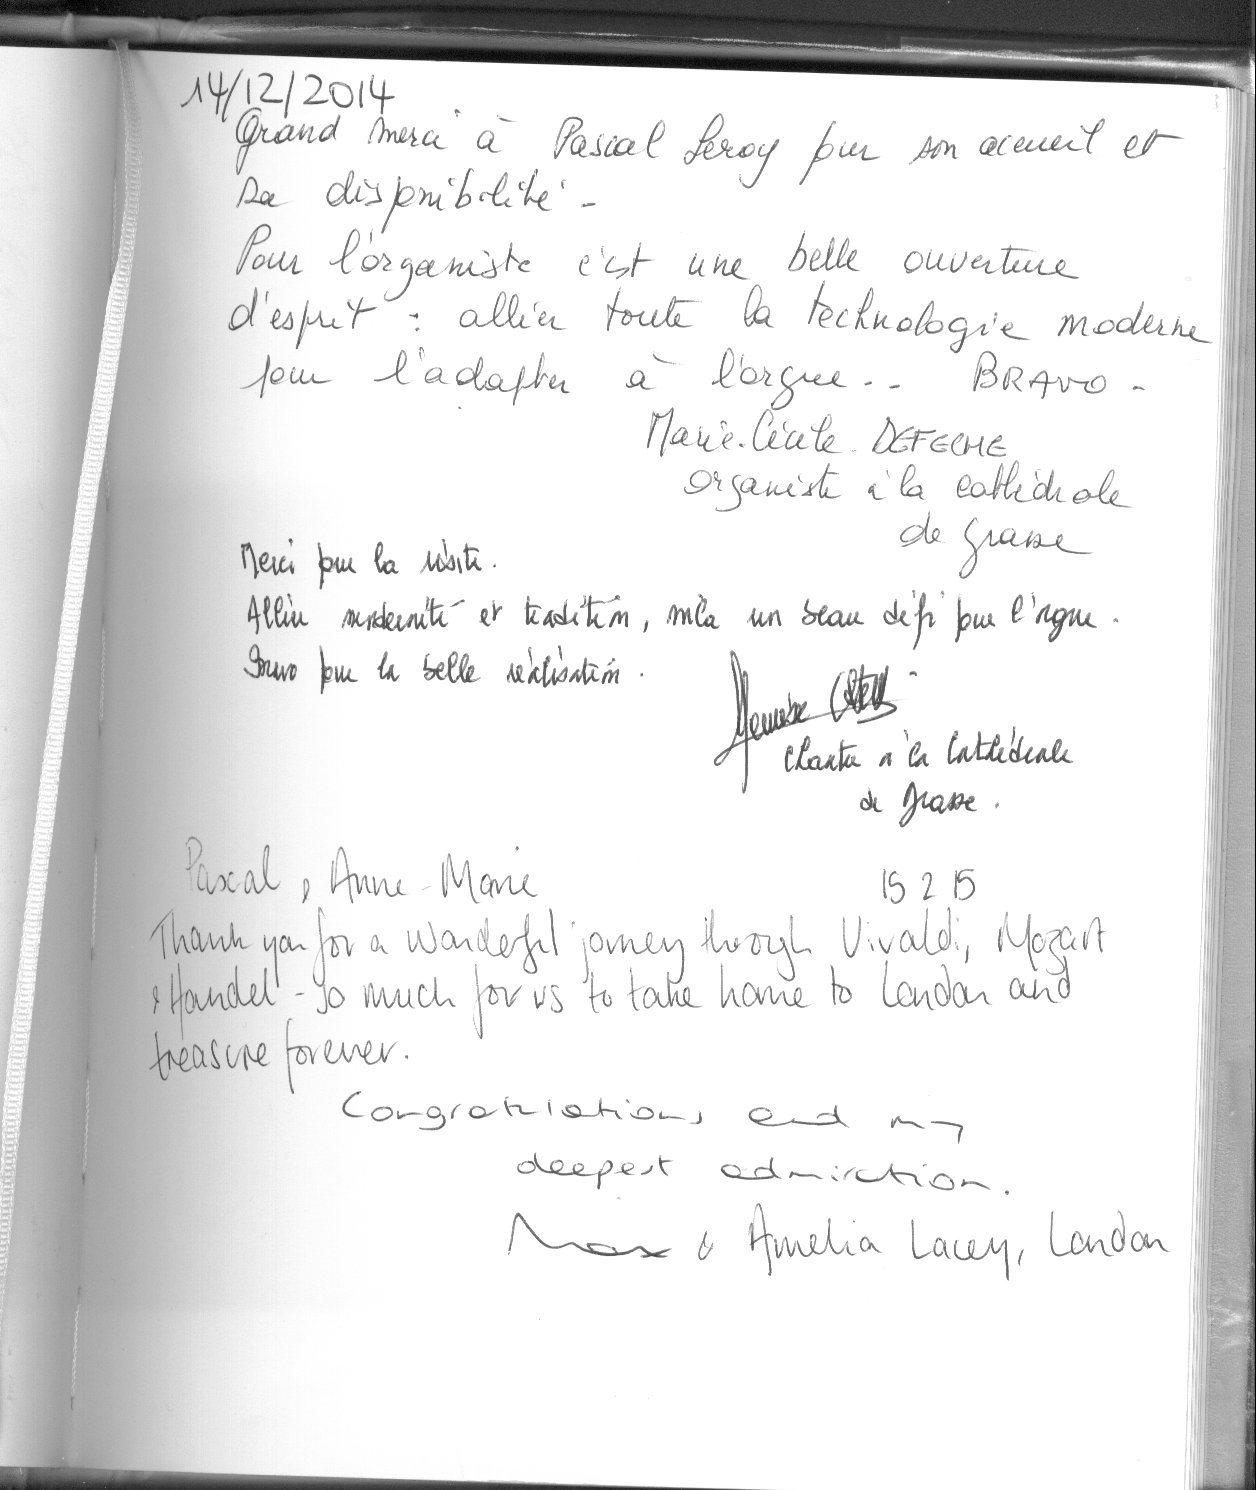 14/12/2014
Grand merci à Pascal Leroy pour son accueil et
sa disponibilité -
Pour l'organiste c'est une belle ouverture
d'esprit : allier toute la technologie moderne
pour l'adapter à l'orgue.. BRAVO -
Marie-Cécile DEFECHE
organiste à la cathédrale
de Grasse
Merci pour la visite.
Allier modernité et tradition, voilà un beau défi pour l'orgue.
Bravo pour la belle réalisation.
Chantre à la Cathédrale
de Grasse.
Pascal, Anne-Marie
15 2 15
Thank you for a wonderful journey through Vivaldi, Mozart
& Handel - so much for us to take home to London and
treasure forever.
Congratulations and my
deepest admiration.
Max & Amelia Lacey, London